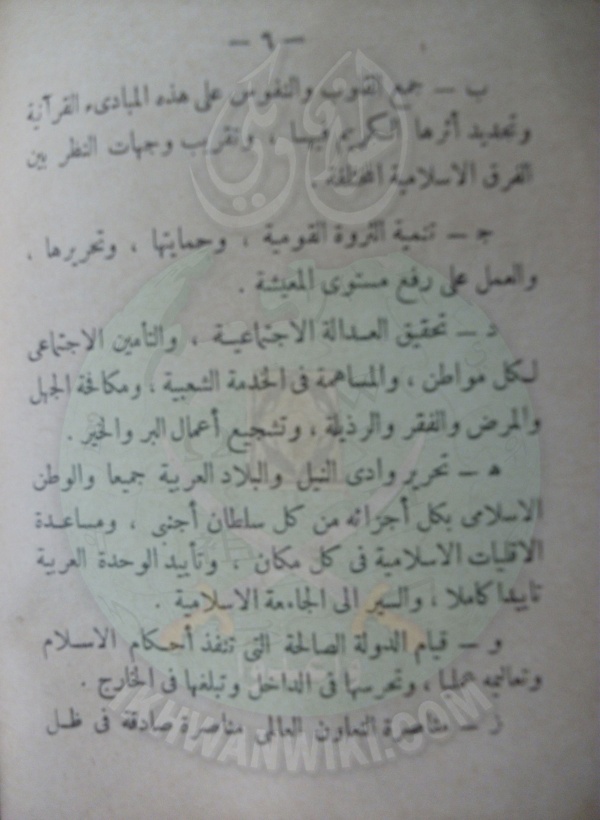 — ٦ —
ب — جمع القلوب والنفوس على هذه المبادىء القرآنية
وتجديد أثرها الكريم فيها ، وتقريب وجهات النظر بين
الفرق الاسلامية المختلفة .
جـ — تنمية الثروة القومية ، وحمايتها ، وتحريرها ،
والعمل على رفع مستوى المعيشة .
د — تحقيق العدالة الاجتماعية ، والتأمين الاجتماعى
لكل مواطن ، والمساهمة فى الخدمة الشعبية ، ومكافحة الجهل
والمرض والفقر والرذيلة ، وتشجيع أعمال البر والخير .
هـ — تحرير وادى النيل والبلاد العربية جميعا والوطن
الاسلامى بكل أجزائه من كل سلطان أجنبى ، ومساعدة
الاقليات الاسلامية فى كل مكان ، وتأييد الوحدة العربية
تاييدا كاملا ، والسير الى الجامعة الاسلامية .
و — قيام الدولة الصالحة التى تنفذ أحكام الاسلام
وتعاليمه عمليا ، وتحرسها فى الداخل وتبلغها فى الخارج .
ز — مناصرة التعاون العالمى مناصرة صادقة فى ظل
IKHWANWIKI.COM